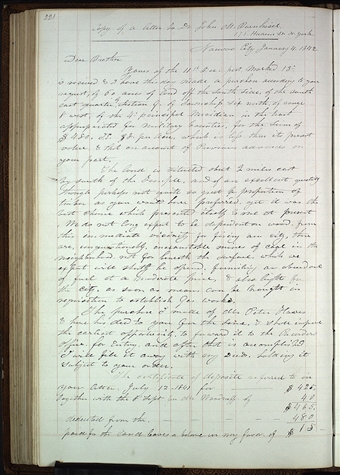 221
Copy of a letter to Dr. John M. Bernhisel
176 Hudson St N. York
Nauvoo City, January 4, 1842
Dear Brother
Yours of the 11th Dec. post marked 13th
is received & I have this day made a purchase according to your
request, of 60 acres of land off the South side, of the South
east quarter Section 9, of Township six north, of range
8 west, of the 4th principal Meridian in the tract
appropriated for Military bounties, for the Sum of
$480. or $8 per acre, which is less than its present
value, & that no account of Premium advances on
your part.
The land is situated about 2 miles east
by south of the Temple, and is of an excellent quality
though perhaps not quite so great a proportion of
timber as you would have preferred, yet it was the
best choice which presented itself to me at present
We do not long expect to be dependent on wood from
the immediate vicinity, for firing our city, there
are, unquestionably, inexhaustible mines of coal in the
neighborhood, not far beneath the surface, which we
expect will shortly be opened, furnishing an abundance
of fuel at a moderate price, & also lights for
the city, as soon as means can be brought in
requisition to establish Gas works.
This purchase I made of Mr. Peter Hawes
& have his deed to you for the same, & shall improve
the earliest opportunity to forward it to the Recorders
Office for Entry and after that is accomplished
I will file it away with my Deeds, holding it
subject to your order.
The certificate of deposite referred to in
your letter July 12th 1841 for $425.
Together with the 8th Sept. in the hands of 40
$465.
deducted from the 480
paid for the Land leaves a balance in my favor of $15